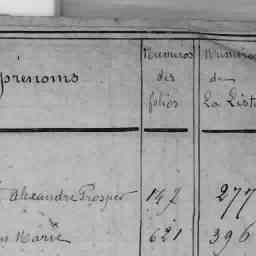 prénoms
Numéros des folios
Numéro de La List
Alexandre Prosper 147 277
Marie 621 396